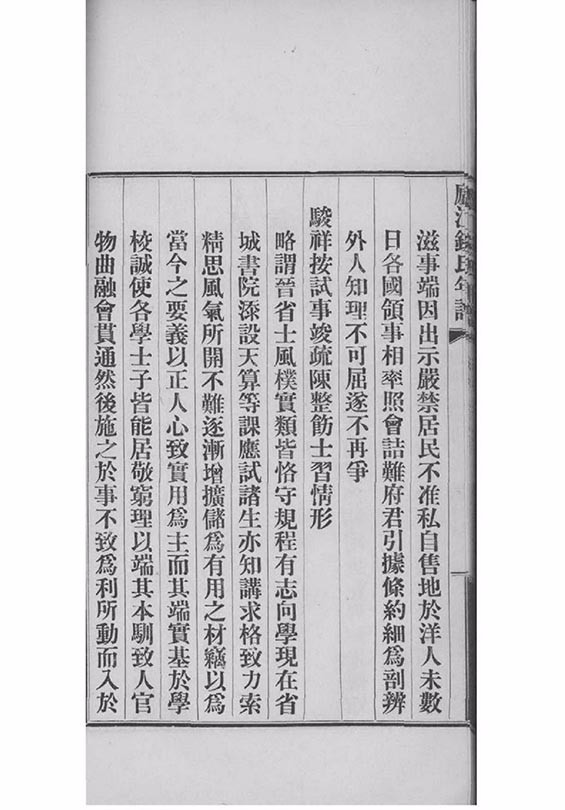 廬江錢氏年譜
滋事端因出示嚴禁居民不准私自售地於洋人未數
日各國領事相率照會詰難府君引據條約細爲剖辨
外人知理不可屈遂不再爭
駿祥按試事竣疏陳整飭士習情形
略謂晉省士風樸實類皆恪守規程有志向學現在省
城書院添設天算等課應試諸生亦知講求格致力索
精思風氣所開不難逐漸增擴儲爲有用之材竊以爲
當今之要義以正人心致實用爲主而其端實基於學
校誠使各學士子皆能居敬窮理以端其本馴致人官
物曲融會貫通然後施之於事不致爲利所動而入於